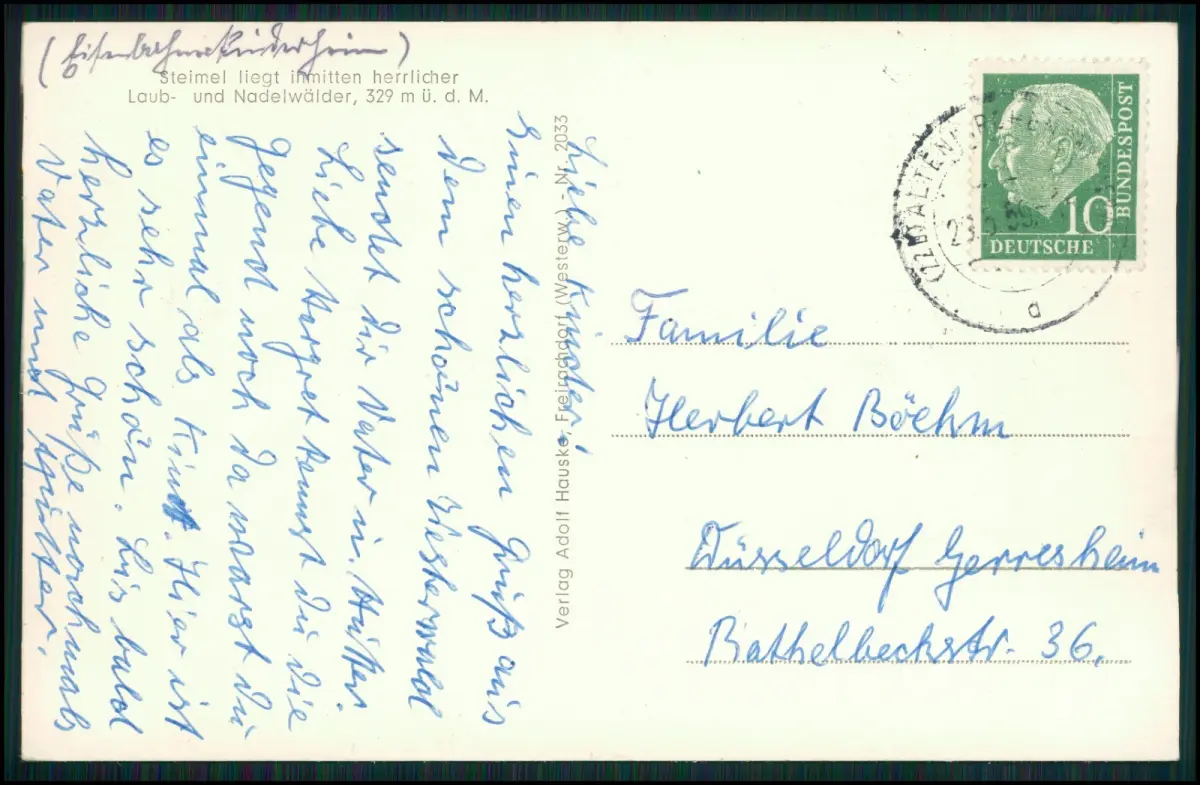 (Eisenbahnerkinderheim)
Steimel liegt inmitten herrlicher
Laub- und Nadelwälder, 329 m ü. d. M.
Liebe Kinder!
Einen herzlichen Gruß aus
dem schönen Westerwald
sendet dir Vater u. Mutter.
Liebe Margret kennst du die
Gegend noch da warst du
einmal als Kind. Hier ist
es sehr schön. Bis bald
herzliche Grüße nochmals
Vater und Mutter.
Verlag Adolf Hauske, Freirachdorf (Westerw.) - Nr. 2033
DEUTSCHE
BUNDESPOST
10
(22b) ALTENKIRCHEN
23.5.59
a
Familie
Herbert Böehm
Düsseldorf Gerresheim
Rathelbeckstr. 36.